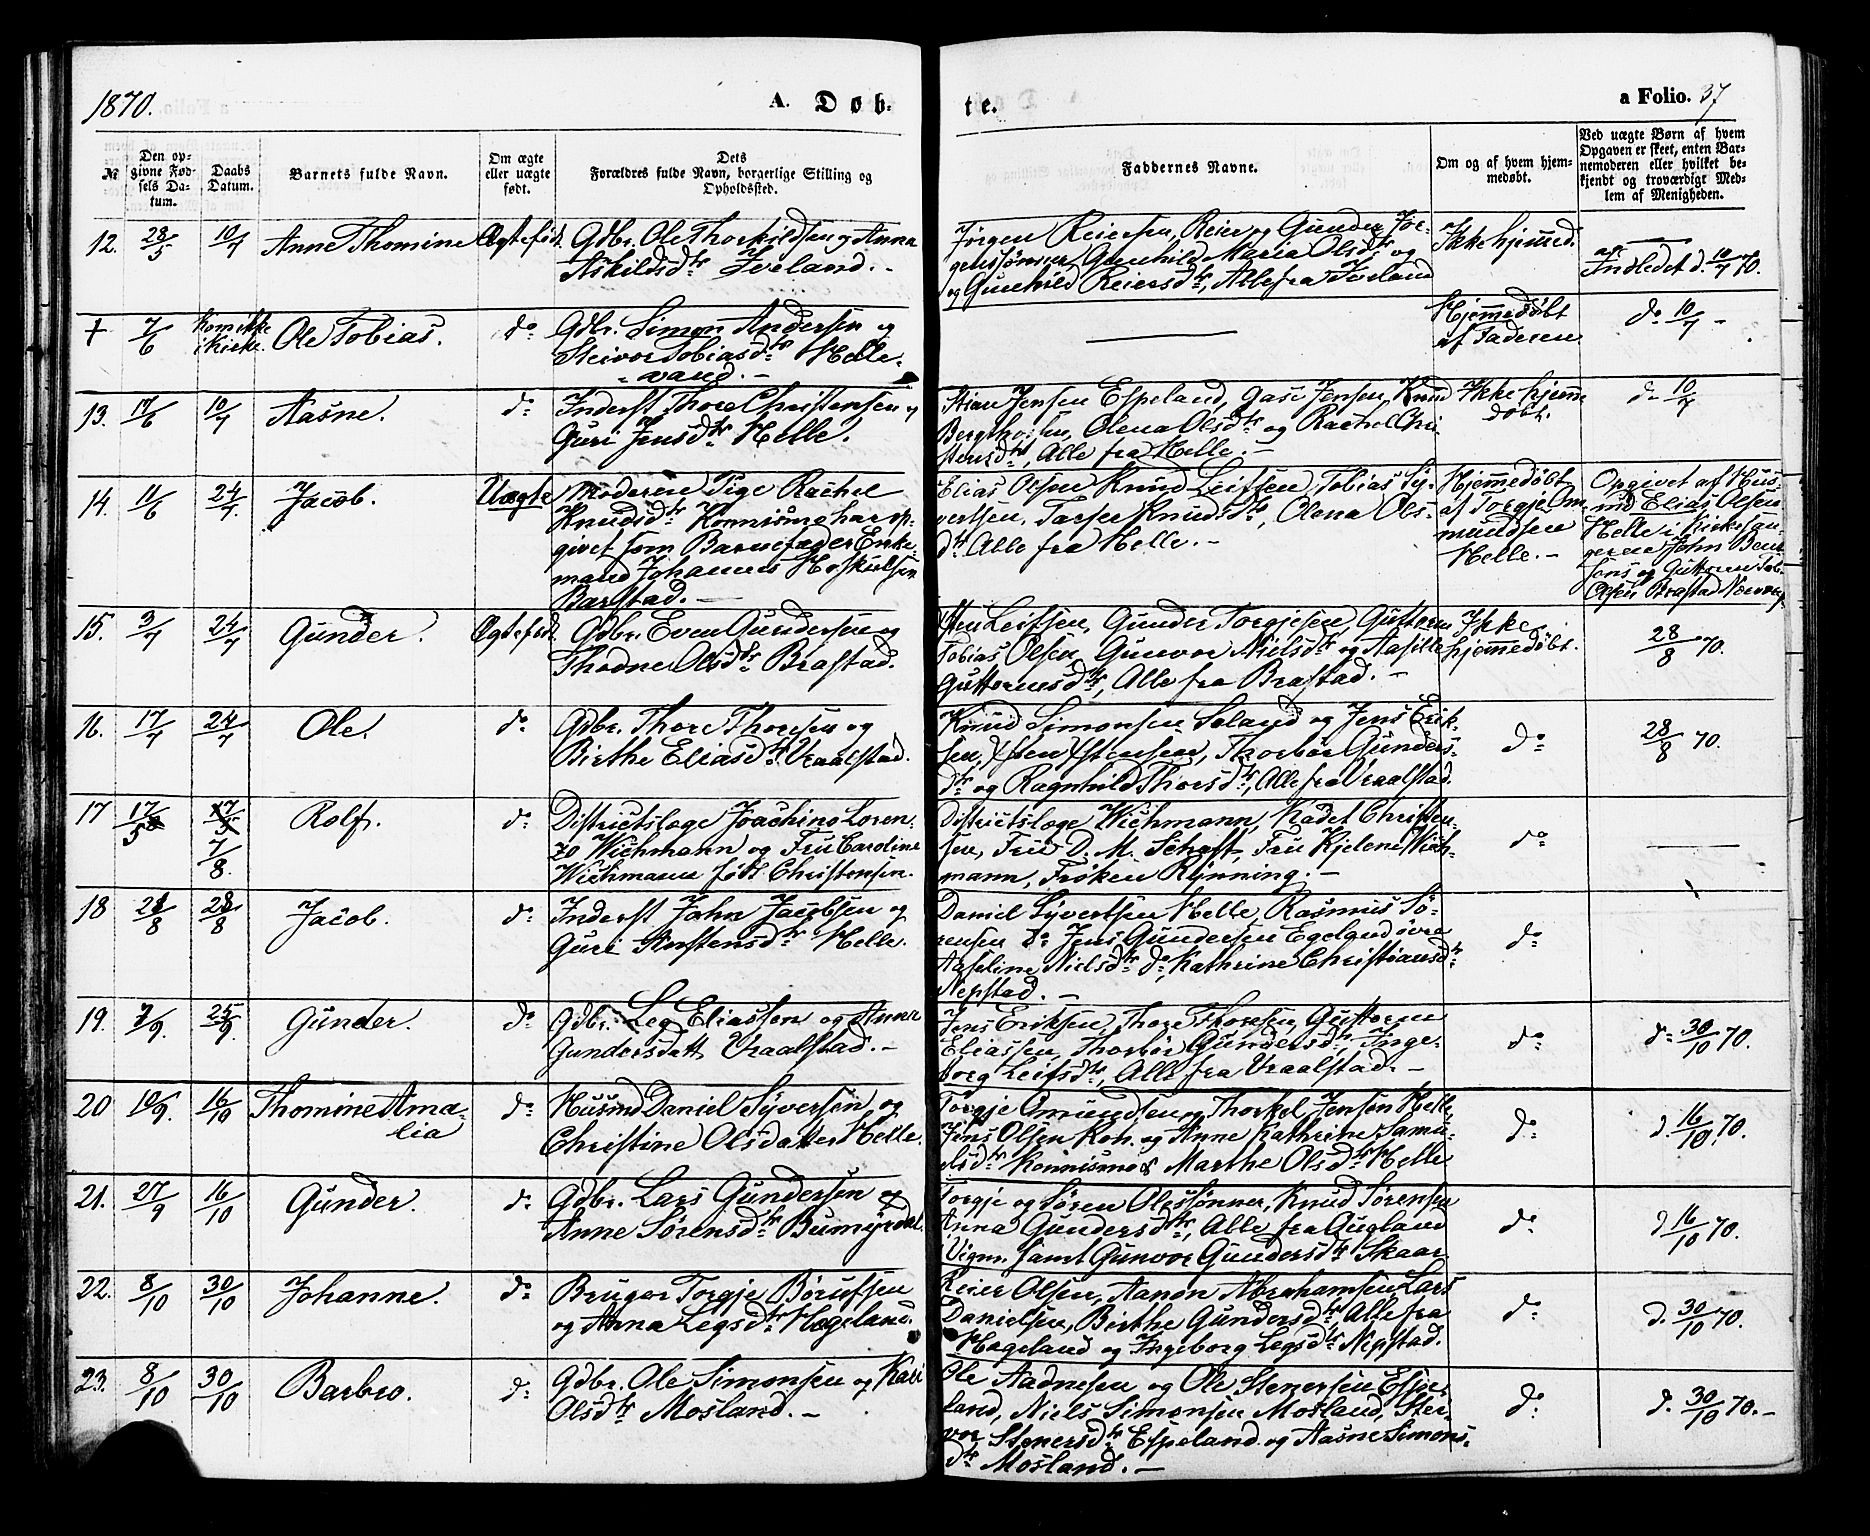 1870. A. Døb- te. a Folio. 37
№ Den opgivne Fødsels Datum. Daabs Datum. Barnets fulde Navn. Om ægte eller uægte født. Dets Forældres fulde Navn, borgerlige Stilling og Opholdssted. Faddernes Navne. Om og af hvem hjemmedøbt. Ved uægte Børn af hvem Opgaven er skeet, enten Barnemoderen eller hvilket bekjendt og troværdigt Medlem af Menigheden.
12. 28/5 10/7 Anne Thomine Ægtefød. Gdbr. Ole Thorkildsen og Anna
Askildsdtr Iveland. -
Jørgen Reiersen, Reier og Gunder Jør-
genssønner, Gunhild Maria Olsdtr og
og Gunhild Reiersdtr, Alle fra Iveland
Ikke hjemmed.
Indledet d. 10/7 70.
+ 7/6 Kom ikke
i Kirke. Ole Tobias. do Gdbr. Simon Andersen og
Steivor Tobiasdtr Helle-
vand. -
Hjemmedøbt
af Faderen
do 10/7 -
13. 17/6 10/7 Aasne. do Inderst Thore Christensen og
Guri Jensdtr Helle.
Jensen Espeland, Jensen, Knud
Bergthorsen, Olena Olsdtr og Rachel Chri-
stensdtr, Alle fra Helle. -
Ikke hjemme
døbt.
do 10/7
14. 11/6 24/7. Jacob. Uægte Moderen Pige Rachel
Knudsdtr Konnismo har op-
givet som Barnefader Enke-
mand Johannes Hoskulsen
Barstad. -
Elias Olsen Knud Leifsen, Tobias Sy-
vertsen, Knudsdtr, Olena Ols-
dtr Alle fra Helle. -
Hjemmedøbt
af Torgje Om-
mundsen
Helle. -
Opgivet af Hus-
md Elias Olsen
Helle i Kirkesan-
geren John Bent-
sens og Guttorm
Olsen Brastad Nærvær.
15. 3/7 24/7 Gunder. Ægtefødt. Gdbr. Even Gundersen og
Thodne Olsdtr Brastad.
Sten Leifsen, Gunder Torgjesen, Guttorm
Tobias Olsen, Gunvor Nielsdtr og Aasille
Guttormsdtr, Alle fra Brastad. -
Ikke
hjemmedøbt.
28/8 70.
16. 17/7 24/7 Ole. do Gdbr. Thore Thoresen og
Birthe Eliasdtr Vraalstad.
Knud Simonsen Soland og Jens Erik-
sen, Sten Stensen, Thorbør Gunders-
dtr og Ragnhild Thorsdtr, Alle fra Vraalstad.
do
28/8 70.
17 17/5 17/5
7/8. Rolf. do Districtslæge Joachino Loren-
zo Wichmann og Fru Caroline
Wichmann født Christensen.
Districtslæge Wichmann, Kadet Christen-
sen, Fru D. M. Schaft, Fru Kjelene Wich-
mann, Frøken Rynning. -
do
18 21/8 28/8 Jacob. do Inderst John Jacobsen og
Guri Stensdtr Helle.
Daniel Syvertsen Helle, Rasmus Sø-
rensen do Jens Gundersen Egeland øvre
Aaseline Nielsdtr do, Kathrine Christiansdtr
Nepstad. -
do
19. 7/9. 25/9 Gunder. do Gdbr. Leg Eliassen og Anne
Gundersdatt Vraalstad. -
Jens Eriksen, Thore Thoresen, Guttorm
Eliassen, Thorbør Gundersdtr, Inge-
borg Leifsdtr, Alle fra Vraalstad. -
do
do 30/10 70.
20 10/9. 16/10 Thomine Ama-
lia do Husmd Daniel Syversen og
Christine Olsdatter Helle.
Torgje Omundsen og Thorkel Jensen Helle,
Jens Olsen Kon. og Anne Kathrine Samu-
elsdtr Konnismo & Marthe Olsdtr Helle
do
d. 16/10 70.
21. 27/9 16/10 Gunder. do Gdbr. Lars Gundersen og
Anne Sørensdtr Bumyrdal.
Torgje og Søren Olessønner, Knud Sørensen
Anna Gundersdtr, Alle fra Augland
Vign. samt Gunvor Gundersdtr Skaar
do
d 16/10 70.
22. 8/10 30/10 Johanne. do Bruger Torgje Børufsen
og Anna Legsdtr Hægeland.
Reier Olsen, Aanon Abrahamsen Lars
Danielsen, Birthe Gundersdtr, Alle fra
Hægeland og Ingeborg Legsdtr Nepstad.
do
d. 30/10 70.
23. 8/10 30/10 Barbro. do Gdbr. Ole Simonsen og Kari
Olsdtr Mosland. -
Ole Aadnesen og Ole Stenersen Espe-
land, Niels Simonsen Mosland, Ster-
vor Stenersdtr Espeland og Aasne Simons-
dtr Mosland. -
do
d. 30/10 70. -